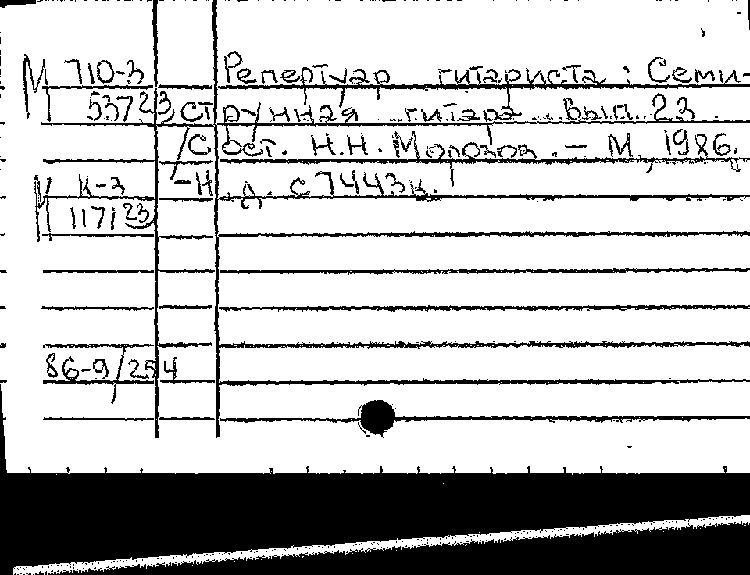 М 710-3 Репертуар гитариста: Семи-
537 23 струнная гитара. Вып. 23
/Сост. Н.Н. Морозов. – М., 1986.
М К-3 –Н.д. с7443к.
1171 23
86-9/254